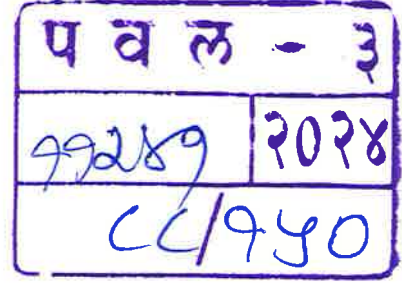 प व ल - ३
११२४१ २०२४
८८/१५०